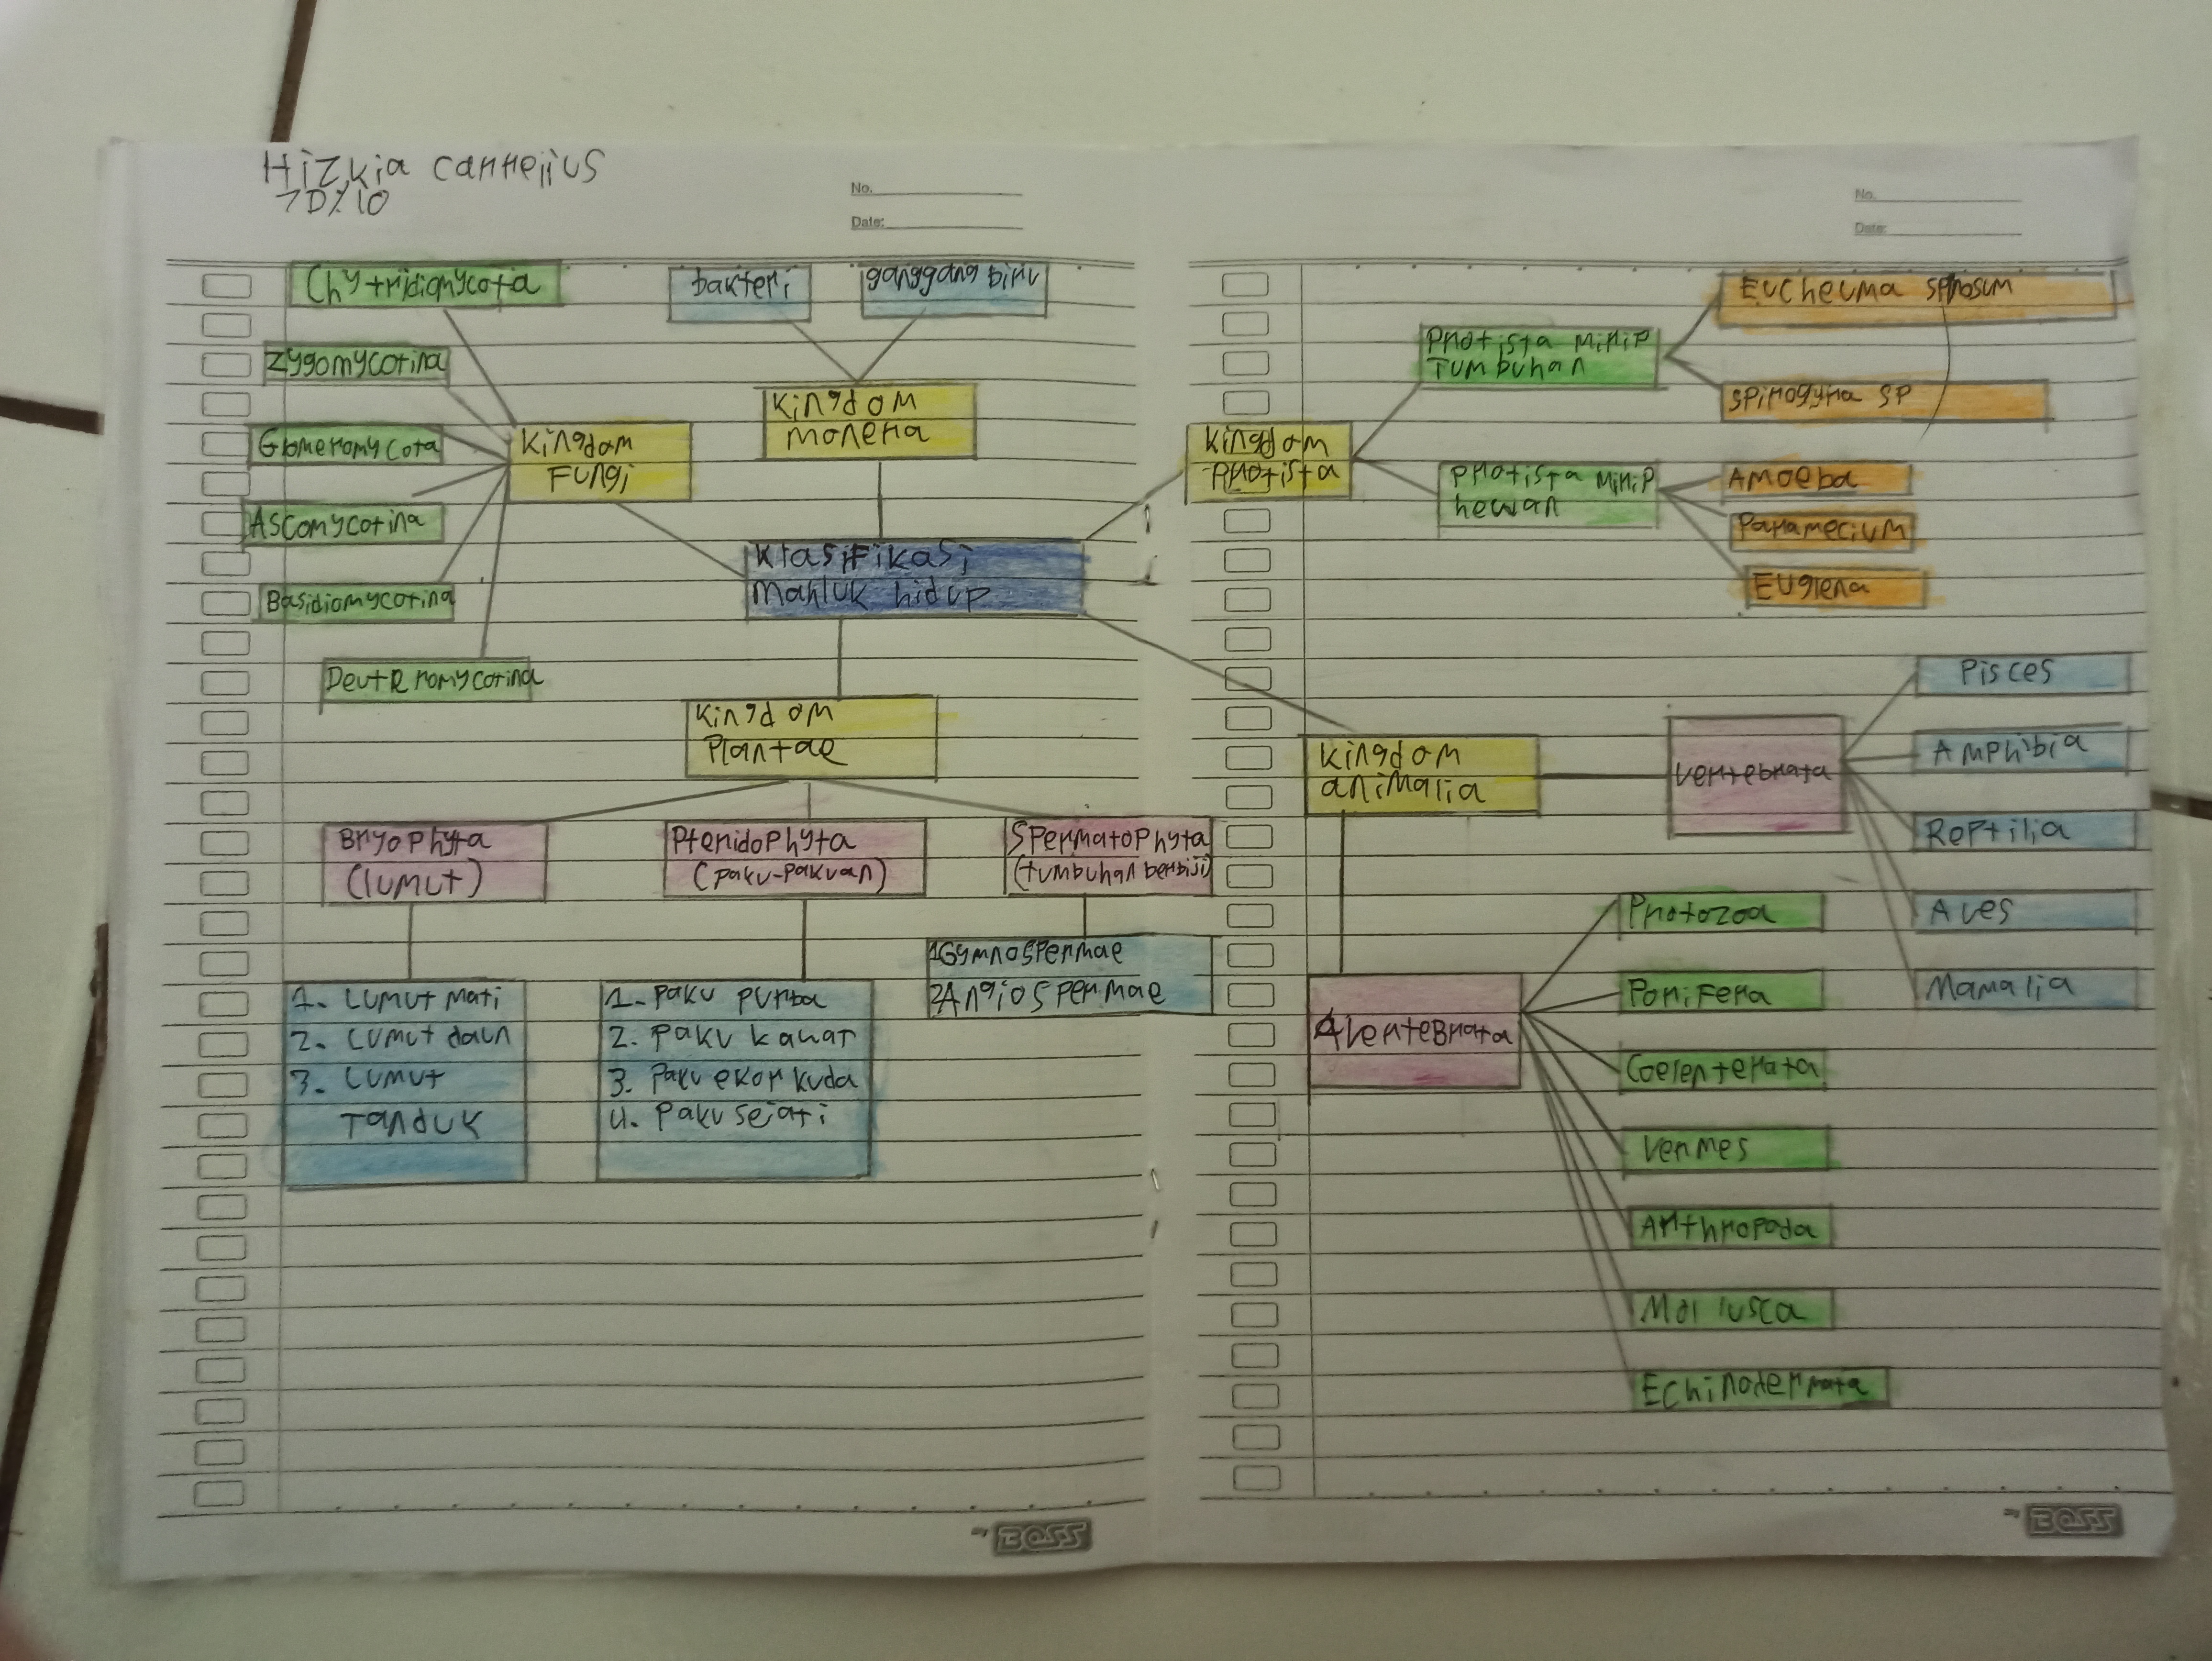 Hizkia carnelius
7D/10
No.
Date:
No.
Date:
Chytridiomycota
bakteri
ganggang biru
Zygomycotina
Kingdom
monera
Glomeromycota
Kingdom
Fungi
Ascomycotina
Klasifikasi
Mahluk hidup
Basidiomycotina
DeutRromycotina
Kingdom
Plantae
Bryophyta
(lumut)
Pteridophyta
(paku-pakuan)
Spermatophyta
(tumbuhan berbiji)
1. Lumut Mati
2. Lumut daun
3. Lumut
Tanduk
1. Paku purba
2. Paku kawat
3. Paku ekor kuda
4. Paku sejati
1Gymnospermae
2Angiospermae
BOSS
Kingdom
Protista
Protista Mirip
Tumbuhan
Eucheuma spinosum
Spirogyra sp
Protista Mirip
hewan
Amoeba
Paramecium
Euglena
Kingdom
animalia
Vertebrata
Pisces
Amphibia
Reptilia
Aves
Mamalia
AVertebrata
Protozoa
Porifera
Coelenterata
Vermes
Arthropoda
Mollusca
Echinodermata
BOSS